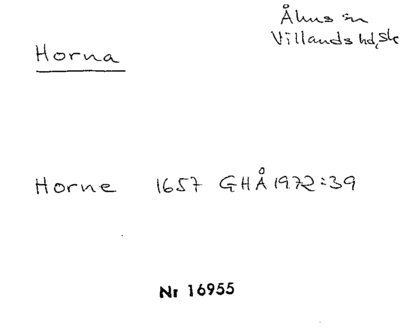 Åhus sn
Villands hd, Sk
Horna
Horne 1657 GHÅ 1972:39
Nr 16955